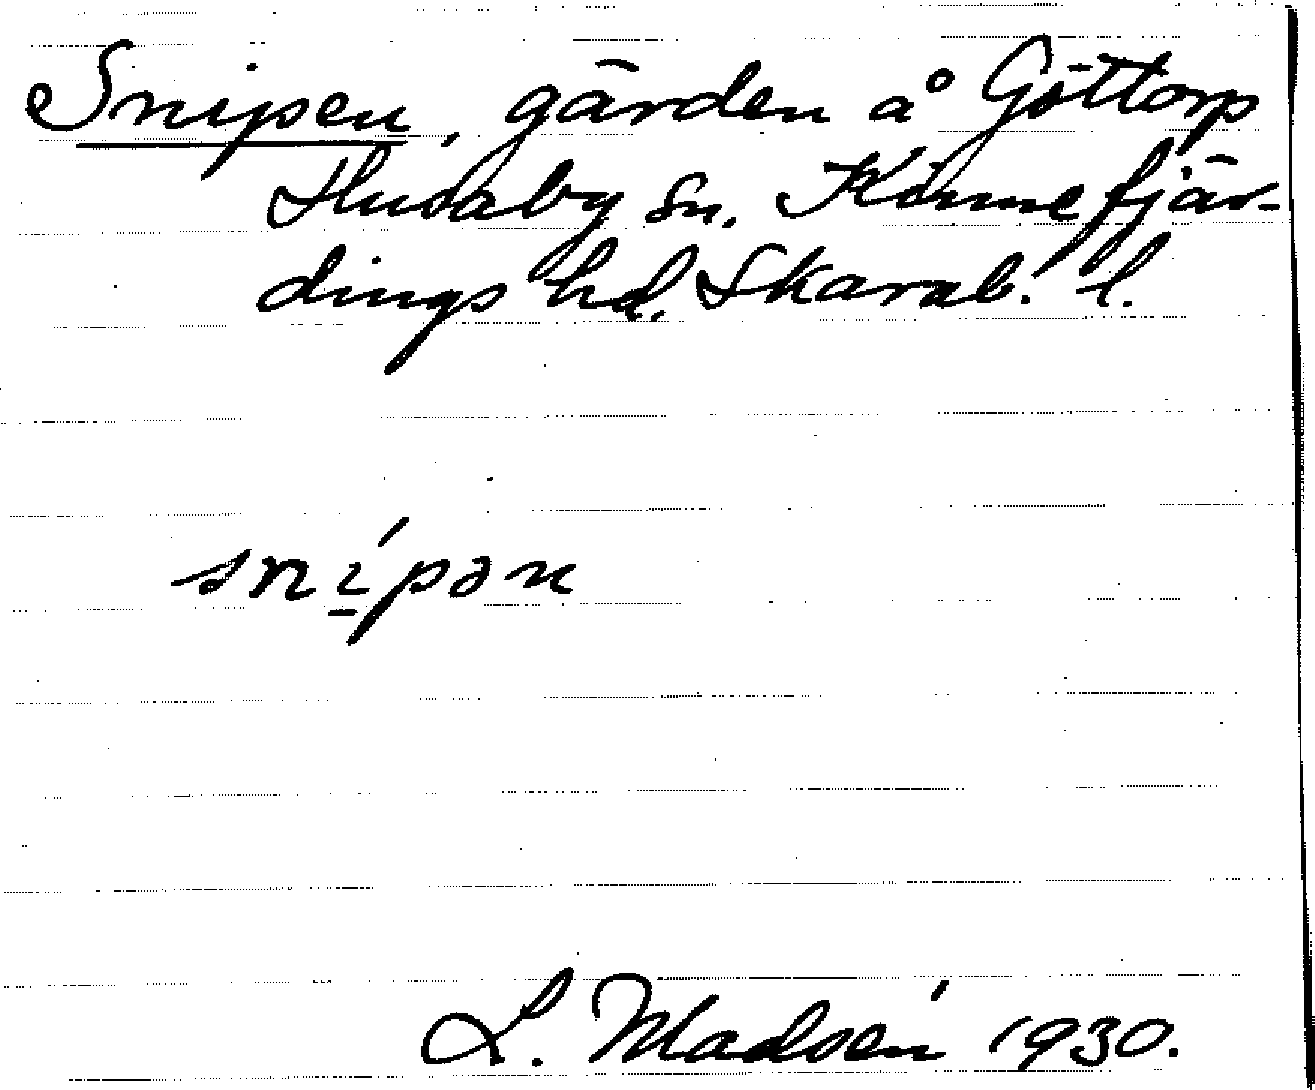 Snipen, gärden å Göttorp
Husaby sn. Kinnefjär-
dings hd. Skarab. l.
snípən
L. Madsén 1930.